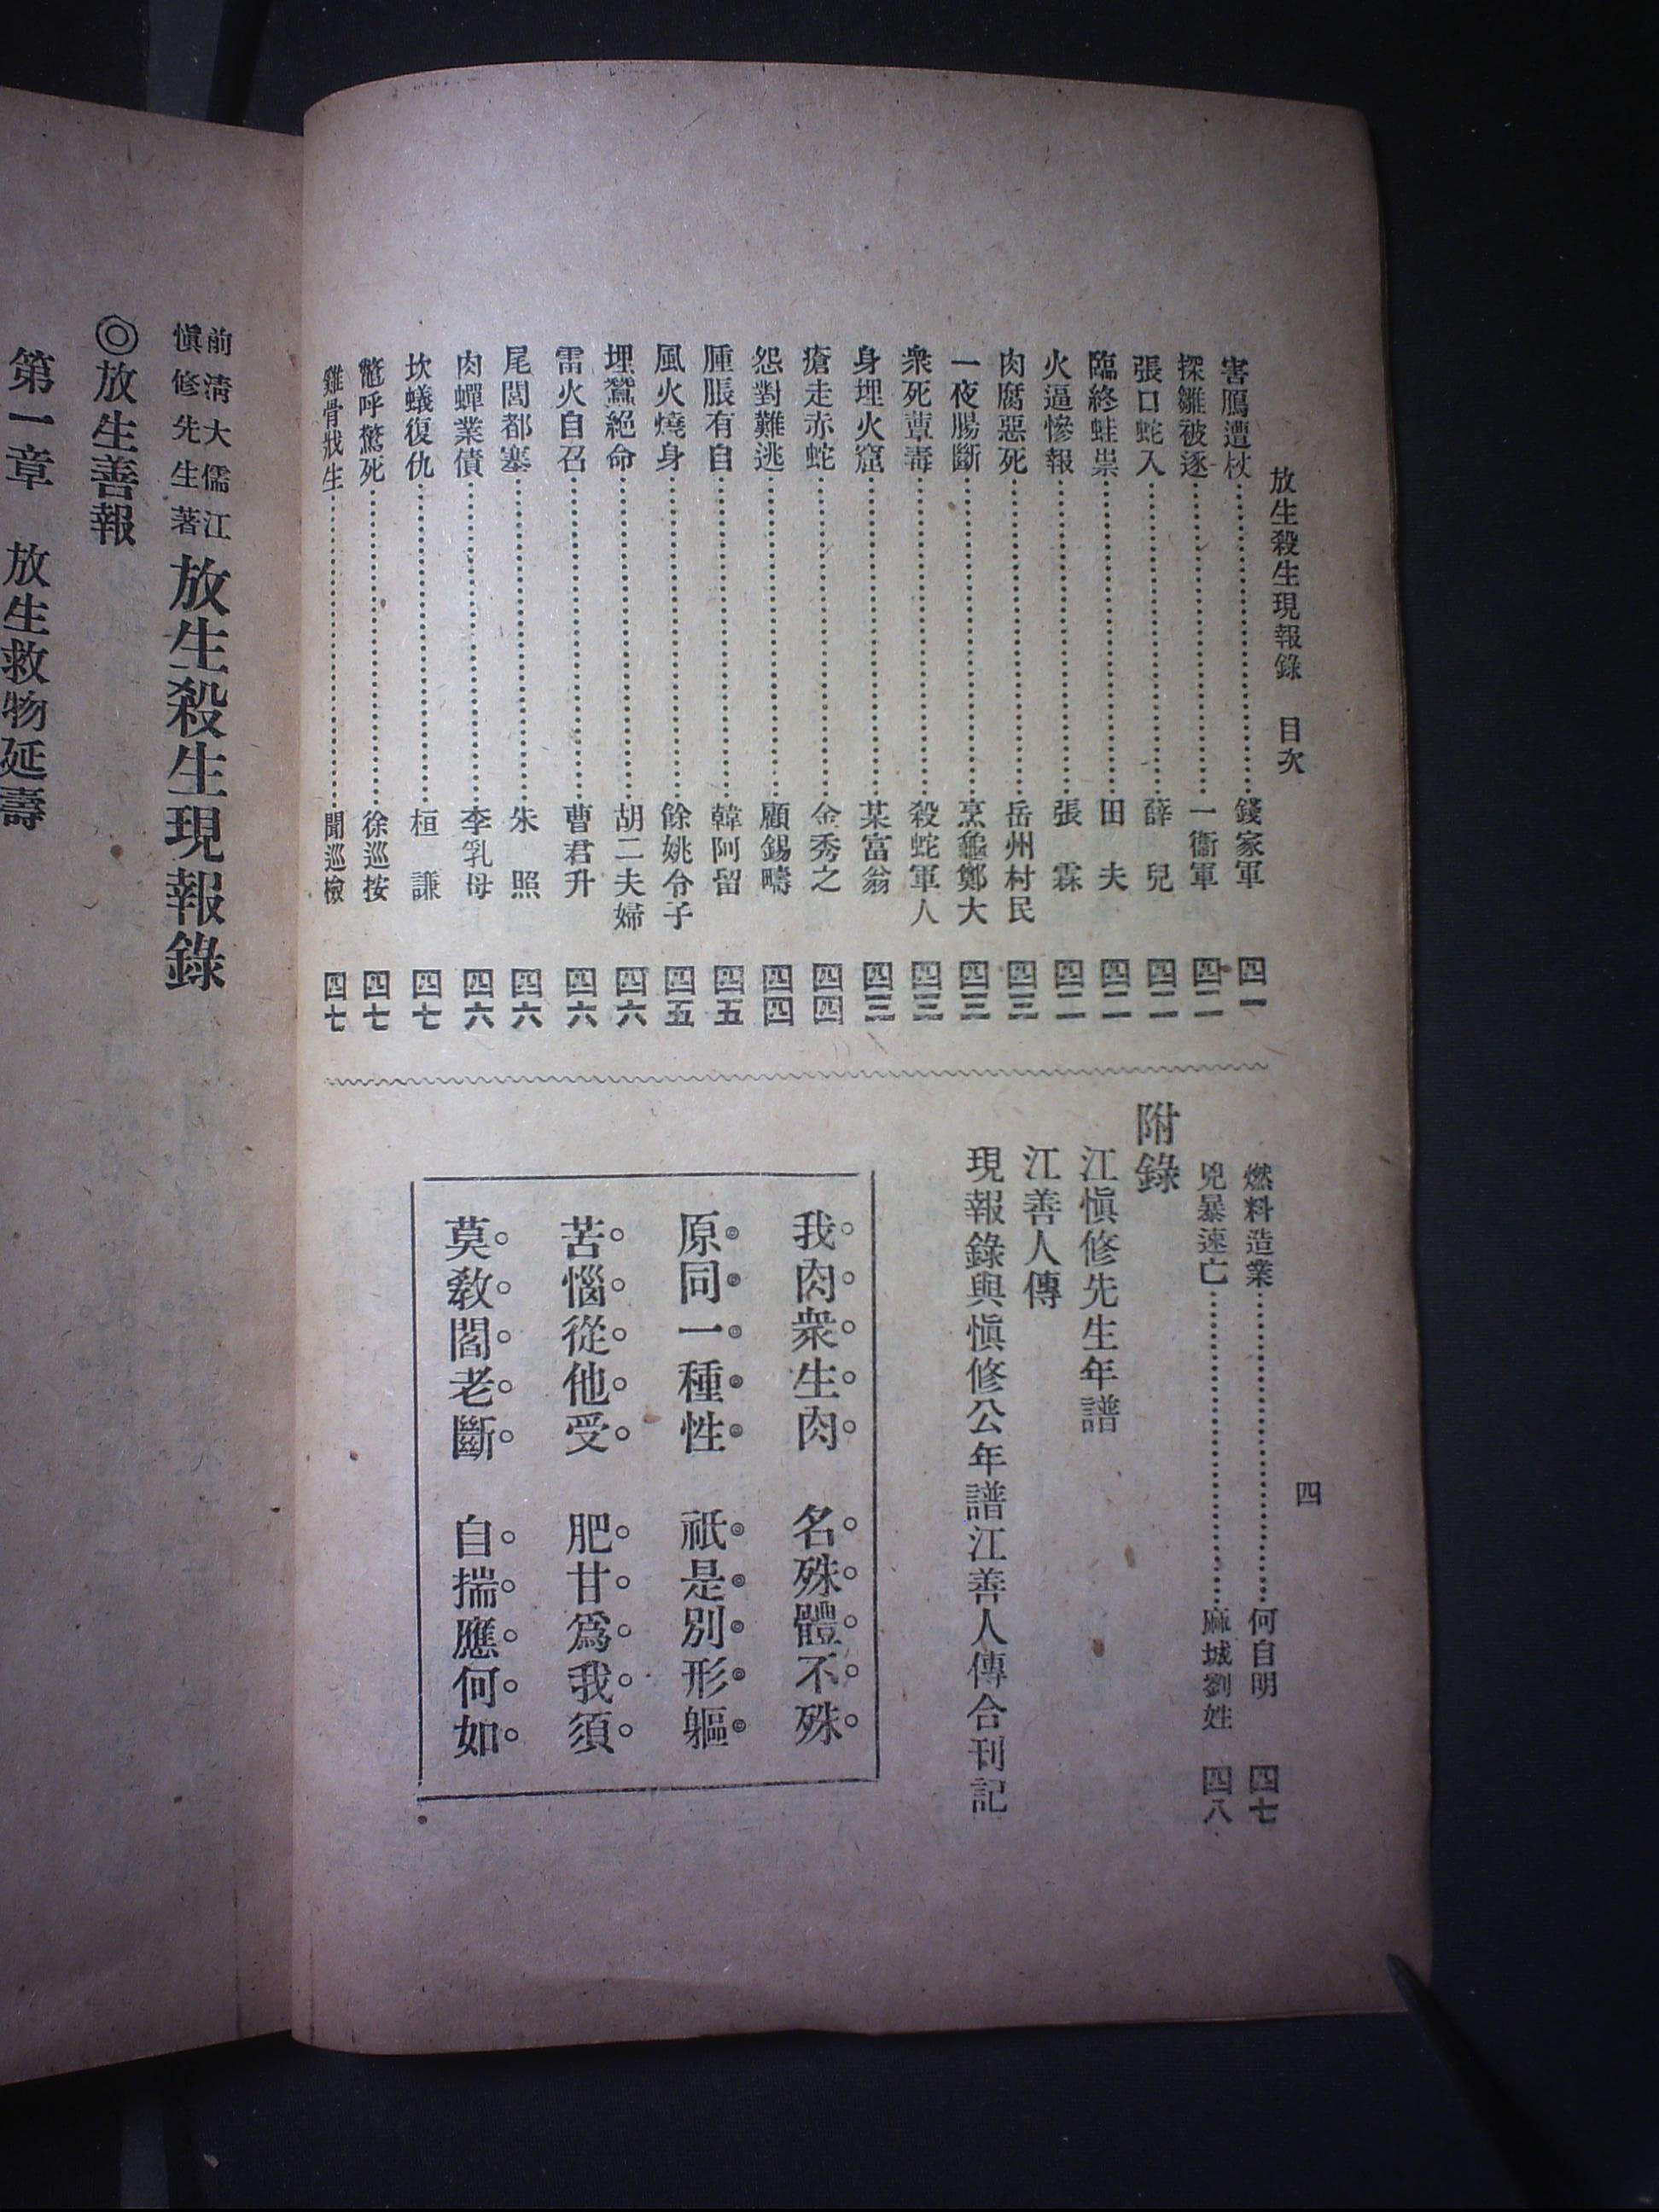 放生殺生現報錄　目次　四
害鴈遭杖……錢家軍　四一
探雛被逐……一衞軍　四二
張口蛇入……薛　兒　四二
臨終蛙祟……田　夫　四二
火逼慘報……張　霖　四二
肉腐惡死……岳州村民　四三
一夜腸斷……烹龜鄭大　四三
衆死蕈毒……殺蛇軍人　四三
身埋火窟……某富翁　四三
瘡走赤蛇……金秀之　四四
怨對難逃……顧錫疇　四四
腫脹有自……韓阿留　四五
風火燒身……餘姚佾子　四五
埋鵞絕命……胡二夫婦　四六
雷火自召……曹君升　四六
尾閭都塞……朱　照　四六
肉蟬業債……李乳母　四六
坎蟻復仇……桓　謙　四七
鼈呼驚死……徐巡按　四七
雞骨戕生……聞巡檢　四七
燃料造業……何自明　四七
兇暴速亡……麻城劉姓　四八
附錄
江愼修先生年譜
江善人傳
現報錄與愼修公年譜江善人傳合刊記
我肉衆生肉　名殊體不殊
原同一種性　祇是別形軀
苦惱從他受　肥甘爲我須
莫敎閻老斷　自揣應何如
前淸大儒江
愼修先生著
放生殺生現報錄
◎放生善報
第一章　放生救物延壽